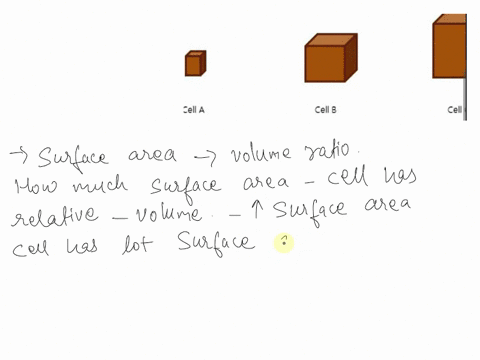 Cell A Cell B Cell
→ Surface area → volume ratio.
How much surface area - cell has
relative - volume. - ↑ Surface area
cell has lot Surface